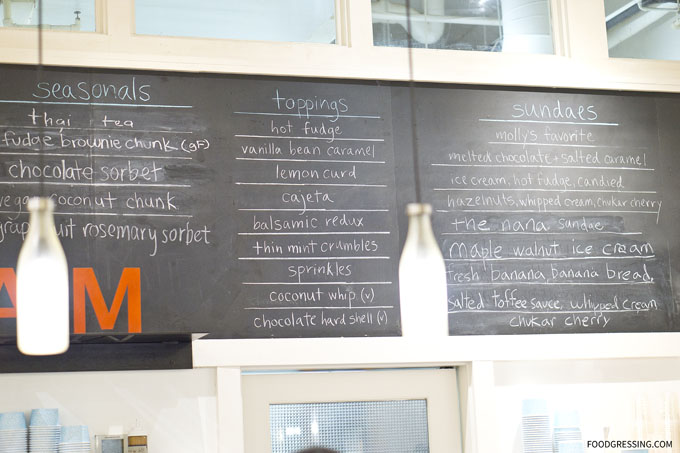 seasonals
thai tea
fudge brownie chunk (GF)
chocolate sorbet
vegan coconut chunk
grapefruit rosemary sorbet
AM
toppings
hot fudge
vanilla bean caramel
lemon curd
cajeta
balsamic redux
thin mint crumbles
sprinkles
coconut whip (v)
chocolate hard shell (v)
sundaes
molly's favorite
melted chocolate + salted caramel
ice cream, hot fudge, candied
hazelnuts, whipped cream, chukar cherry
the nana sundae
maple walnut ice cream
fresh banana, banana bread,
salted toffee sauce, whipped cream
chukar cherry
FOODGRESSING.COM